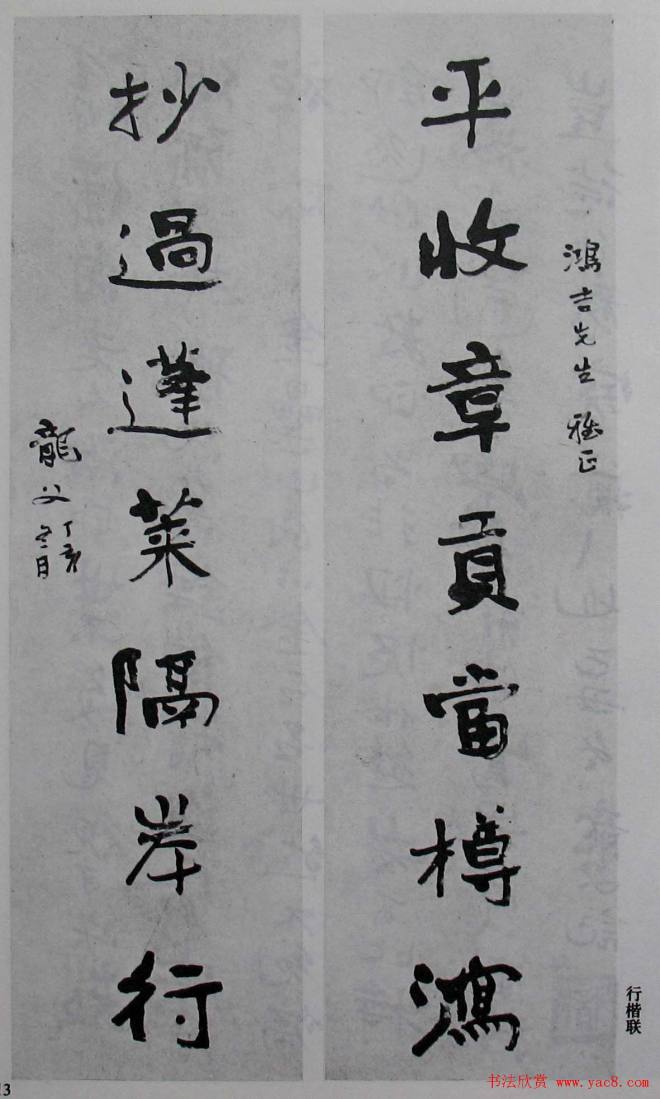 鴻吉先生 雅正
平收章貢當樽瀉
抄過蓬萊隔岸行
龍父 丁亥
冬月
行楷联
13
书法欣赏 www.yac8.com